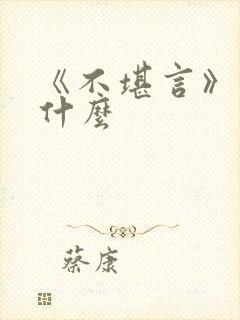 《不堪言》
什麼
蔡康